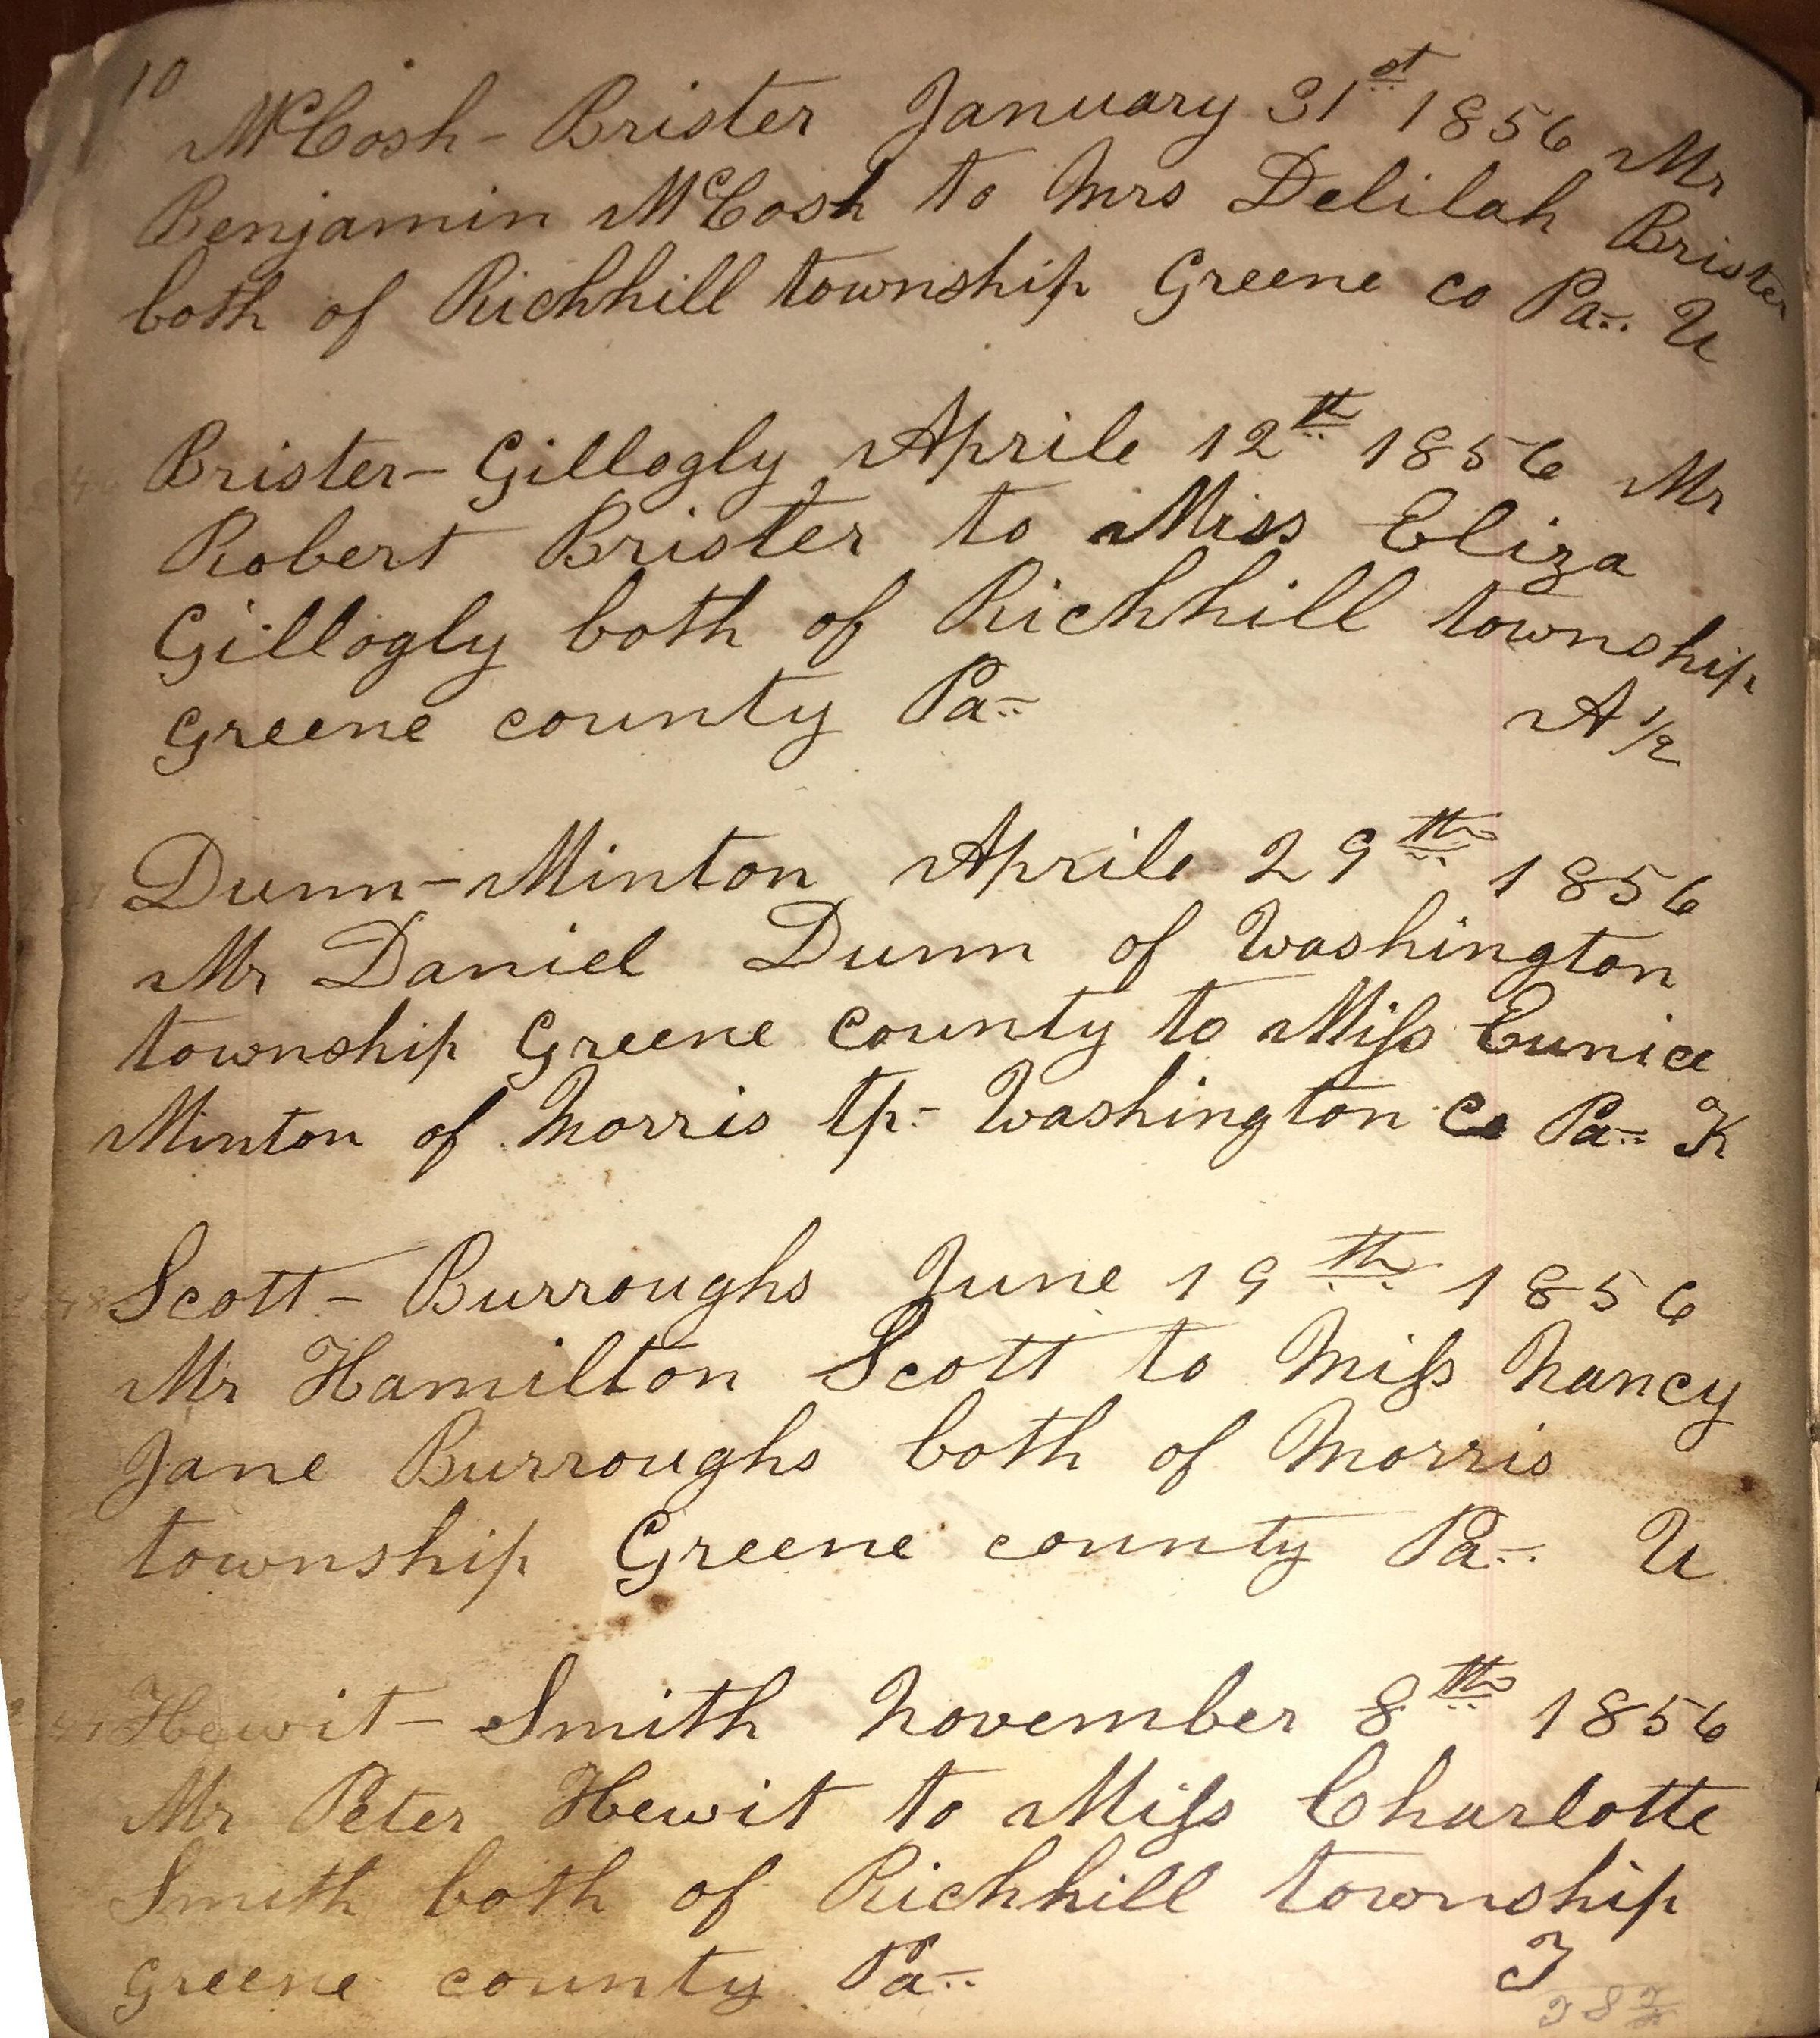 10
McCosh - Brister January 31st 1856 Mr
Benjamin McCosh to Mrs Delilah Brister
both of Richhill township Greene co Pa U
Brister - Gillogly Aprile 12th 1856 Mr
Robert Brister to Miss Eliza
Gillogly both of Richhill township
Greene county Pa A 1/2
Dunn - Minton Aprile 29th 1856
Mr Daniel Dunn of Washington
township Greene county to Miſs Eunice
Minton of Morris tp - Washington Co Pa K
Scott - Burroughs June 19th 1856
Mr Hamilton Scott to Miſs Nancy
Jane Burroughs both of Morris
township Greene county Pa U
Hewit - Smith November 8th 1856
Mr Peter Hewit to Miſs Charlotte
Smith both of Richhill township
Greene county Pa